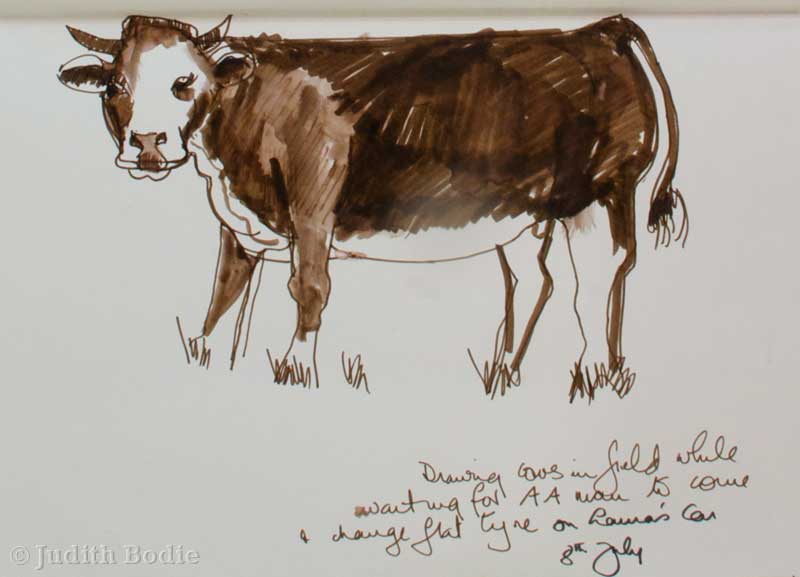 Drawing cows in field while
waiting for AA man to come
& change flat tyre on Laura's Car
8th July
© Judith Bodie